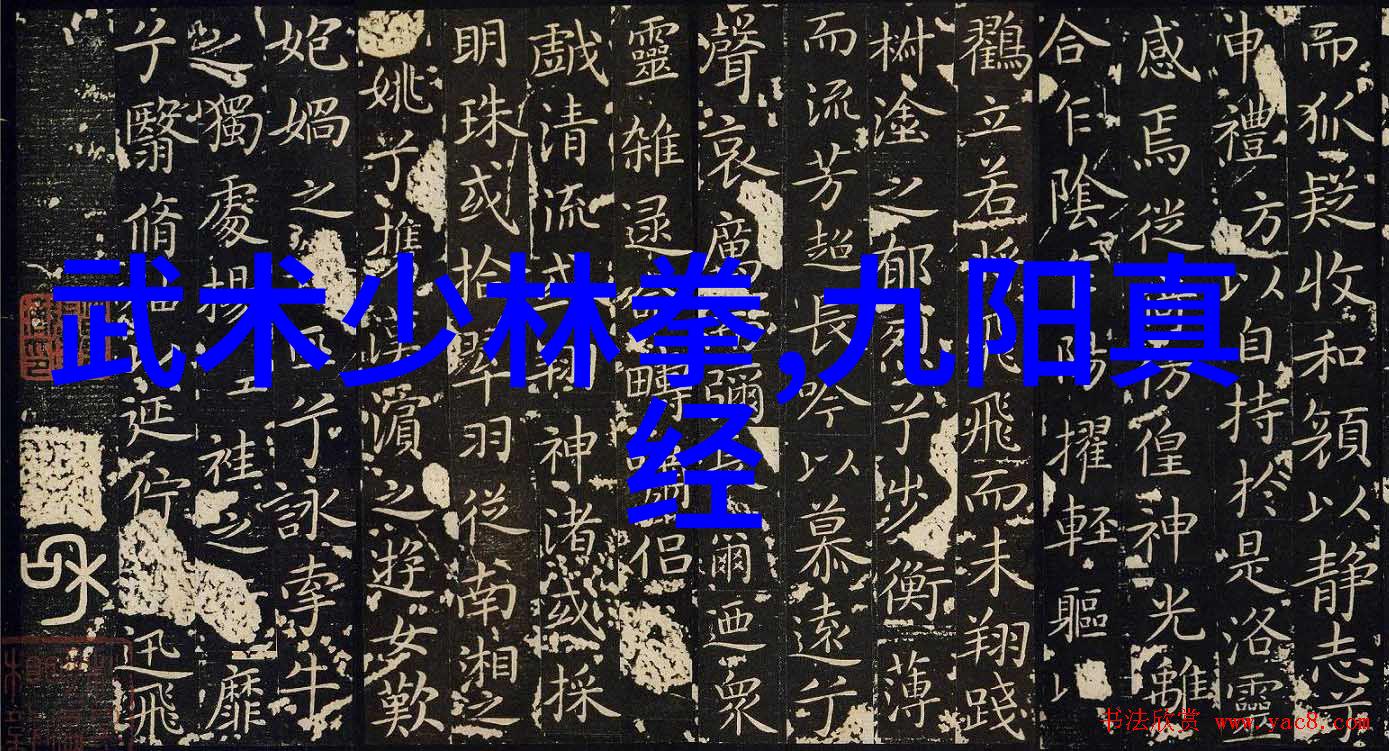 武术少林拳,九阳真
经
而狐疑收和顔以静志兮
申禮方以自持於是洛靈
感焉從倚傍偟神光離
合乍陰乍陽擢輕軀以
鸛立若將飛而未翔踐
椒塗之郁烈兮步衡薄
而流芳超長吟以慕遠兮
聲哀厲而彌長爾迺眾
靈雜遝命疇嘯侶
戲清流或翔神渚或採
明珠或拾翠羽從南湘之
姚兮漢濱之遊女歎
媧之匹兮詠牽牛
之獨處揚袿之靡
兮翳脩袖以延佇迅飛
书法欣赏 www.yac8.com